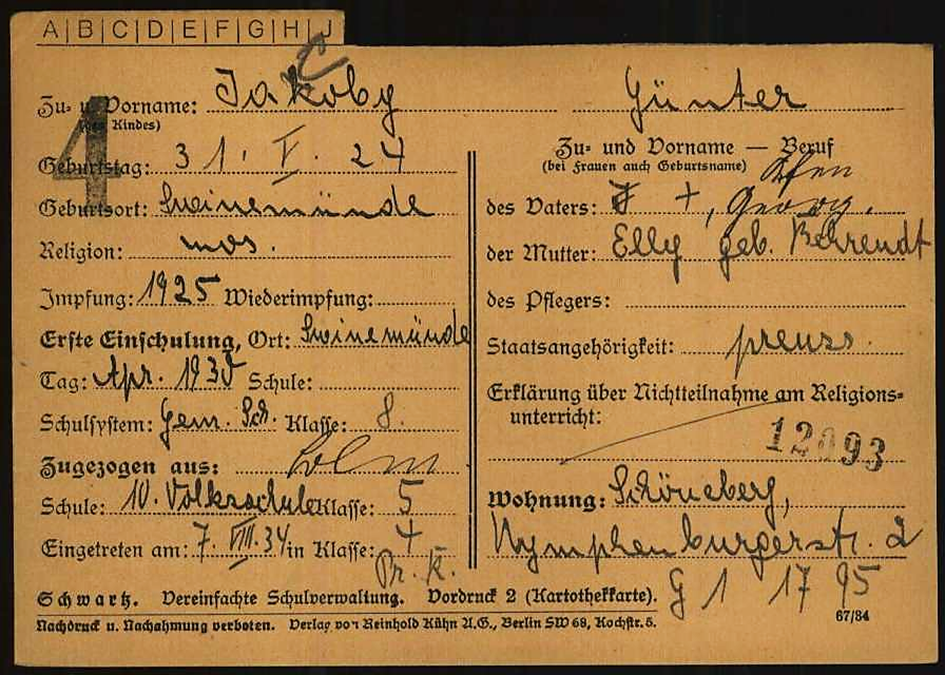 A|B|C|D|E|F|G|H|J
Zu- u Vorname: Jakoby Günter
(des Kindes)
4
Geburtstag: 31. V. 24
Geburtsort: Swinemünde
Religion: mos.
Impfung: 1925 Wiederimpfung:
Erste Einschulung, Ort: Swinemünde
Tag: Apr. 1930 Schule:
Schulsystem: Gem. Sch. Klasse: 8.
Zugezogen aus:
Schule: 10. Volksschule Klasse: 5
Eingetreten am: 7. VIII. 34 in Klasse: 4
Pr. K.
Zu- und Vorname — Beruf
(bei Frauen auch Geburtsname)
des Vaters: +, Georg.
der Mutter: Elly geb. Behrendt
des Pflegers:
Staatsangehörigkeit: preuss.
Erklärung über Nichtteilnahme am Religions-
unterricht:
12093
Wohnung: Schöneberg,
Nymphenburgerstr. 2
G 1 17 95
Schwartz. Vereinfachte Schulverwaltung. Vordruck 2 (Kartothekkarte).
67/34
Nachdruck u. Nachahmung verboten. Verlag von Reinhold Kühn A.G., Berlin SW 68, Kochstr. 5.